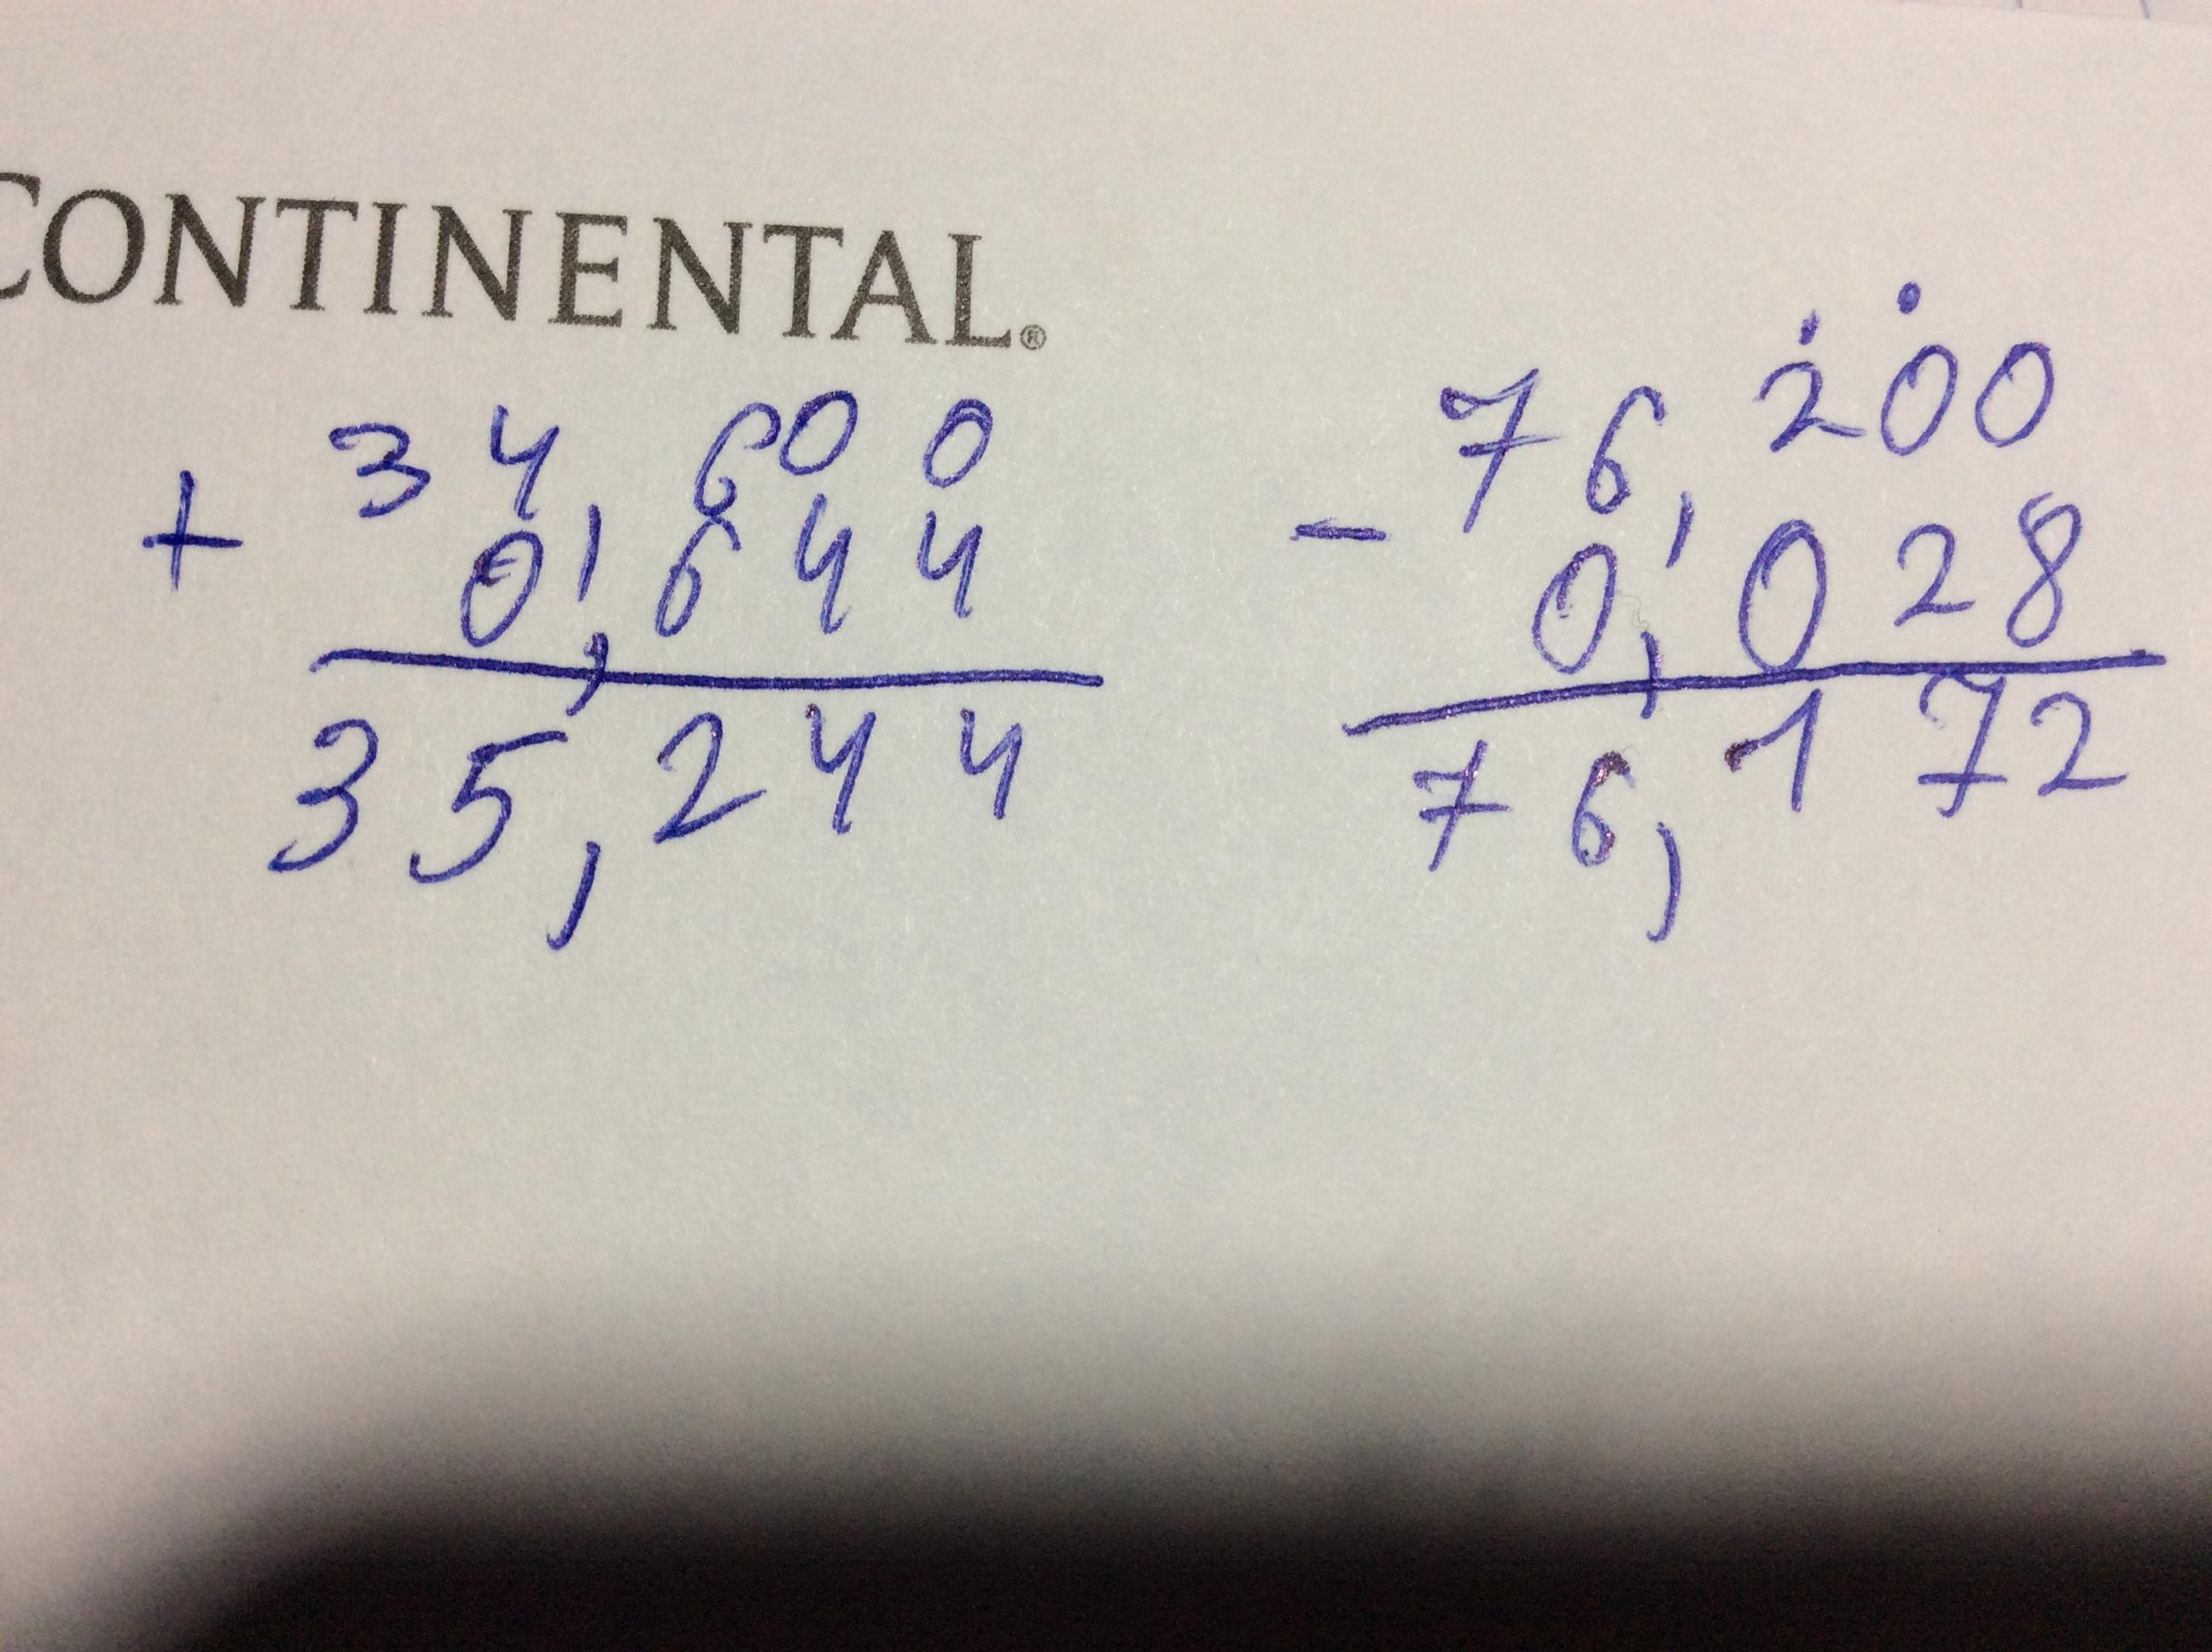 CONTINENTAL®
34,600
+ 0,644
35,244
76,200
- 0,028
76,172